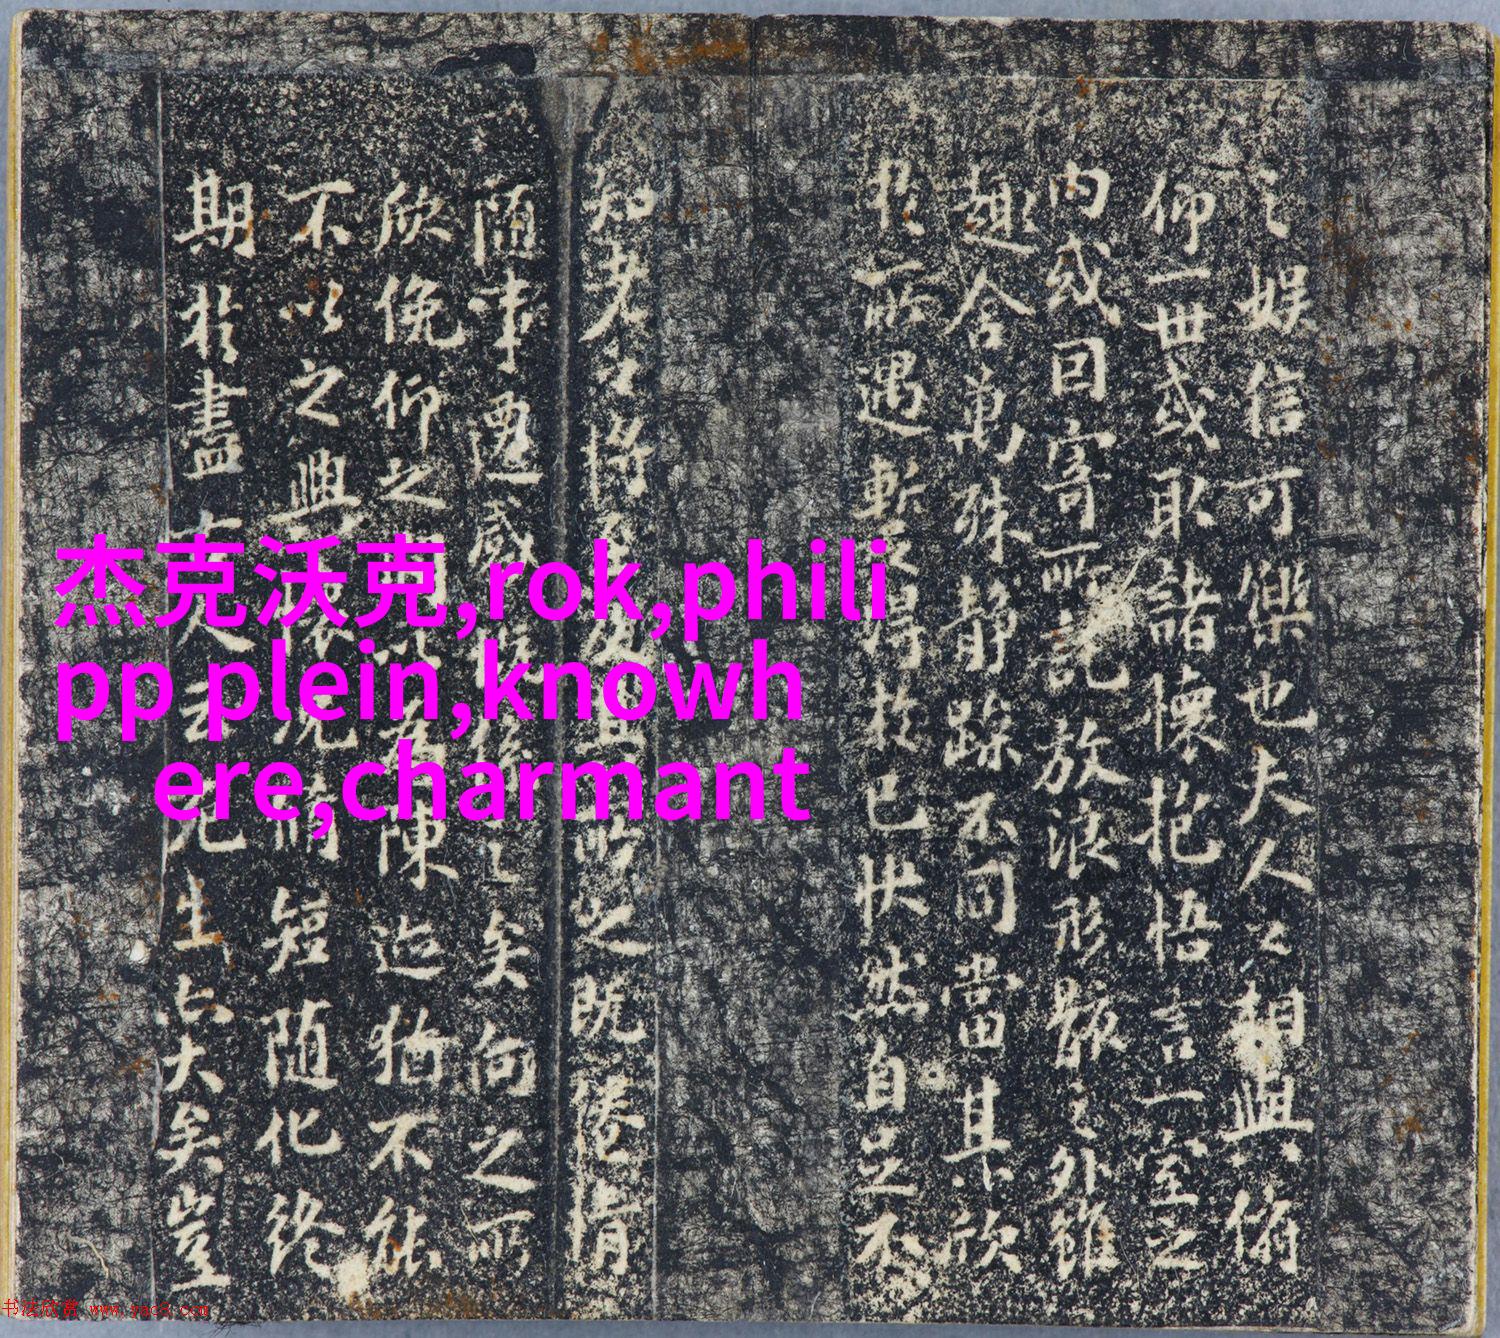 之娱信可樂也夫人之相與俯
仰一世或取諸懷抱悟言一室之
内或因寄所託放浪形骸之外雖
趣舍萬殊静躁不同當其欣
於所遇暫得於己快然自足不
知老之將至及其所之既惓情
随事遷感慨係之矣向之所
欣俛仰之間以為陳迹猶不能
不以之興懷況脩短随化終
期於盡古人云死生亦大矣豈
杰克沃克,rok,phili
pp plein,knowh
ere,charmant
书法欣赏 www.yac8.com